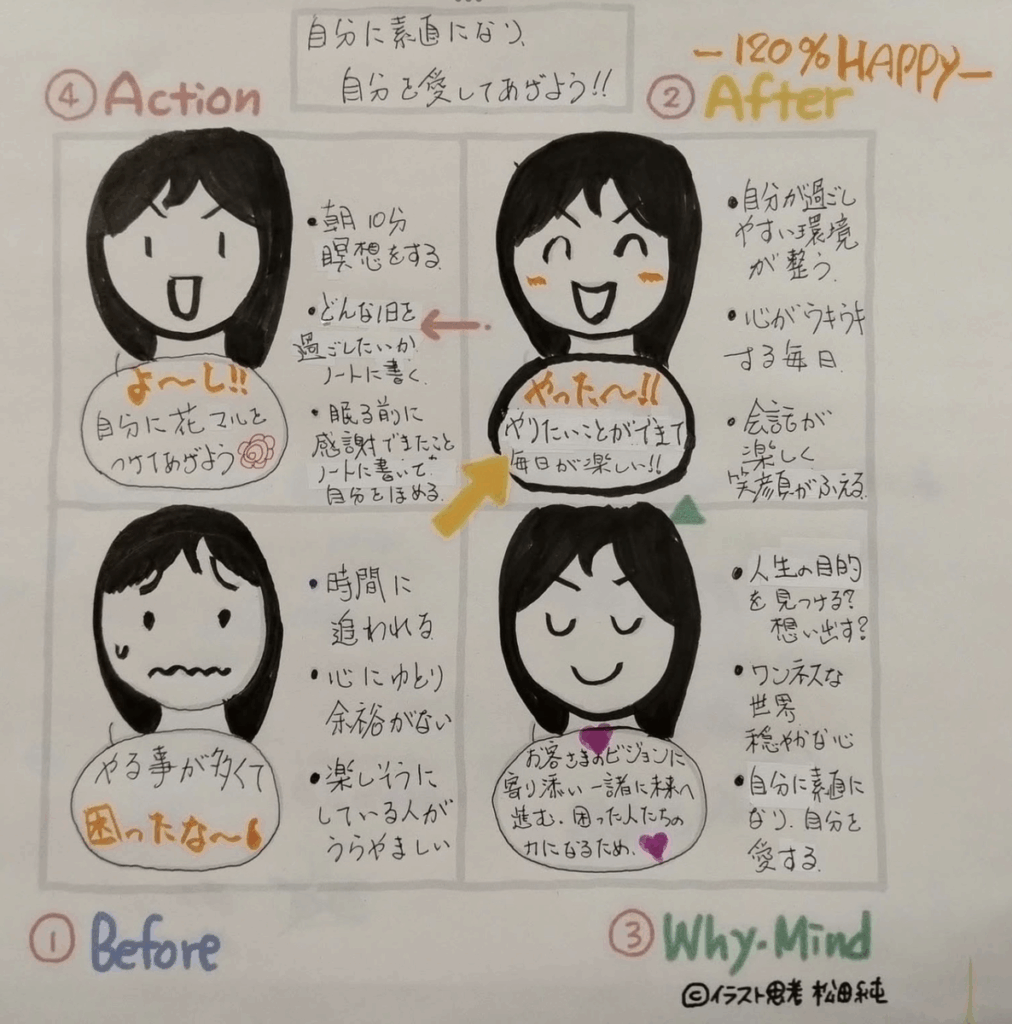 自分に素直になり、
自分を愛してあげよう!!
④Action
・朝10分
瞑想をする
・どんな1日を
過ごしたいか
ノートに書く.
・眠る前に
感謝できたこと
ノートに書いて
自分をほめる.
よ～し!!
自分に花マルを
つけてあげよう
－120%HAPPY－
②After
・自分が過ごし
やすい環境
が整う.
・心がウキウキ
する毎日.
・会話が
楽しく
笑顔がふえる.
やった～!!
やりたいことができて
毎日が楽しい!!
・時間に
追われる
・心にゆとり
余裕がない
・楽しそうに
している人が
うらやましい
やる事が多くて
困ったな～
①Before
・人生の目的
を見つける?
想い出す?
・ワンネスな
世界
穏やかな心
・自分に素直に
なり、自分を
愛する.
お客さまのビジョンに
寄り添い一諸に未来へ
進む、困った人たちの
力になるため、
③Why・Mind
©イラスト思考 松田純